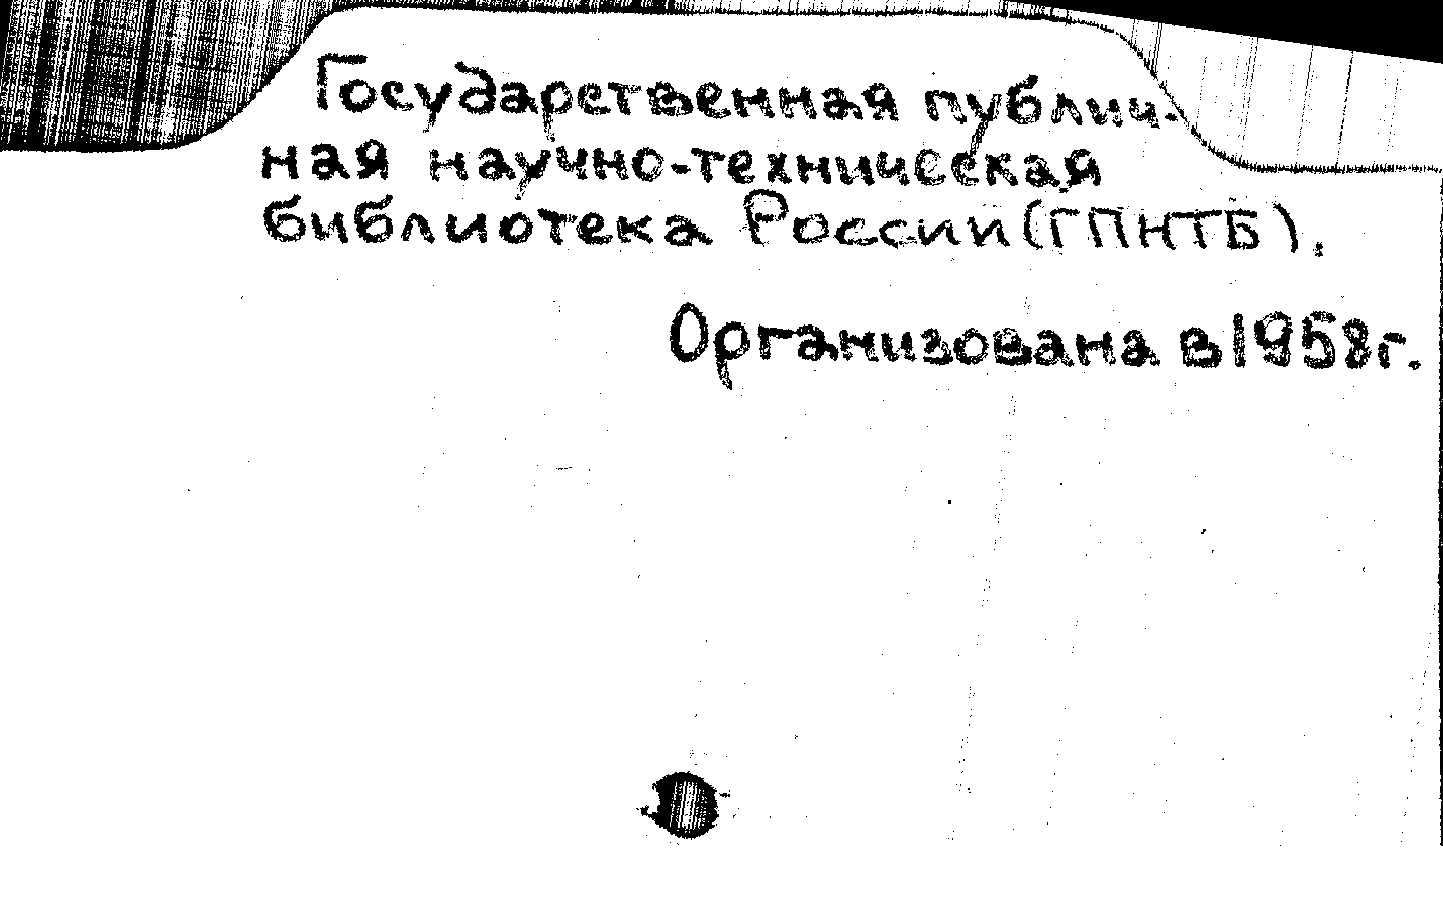 Государственная публич-
ная научно-техническая
библиотека России (ГПНТБ).
Организована в 1958г.